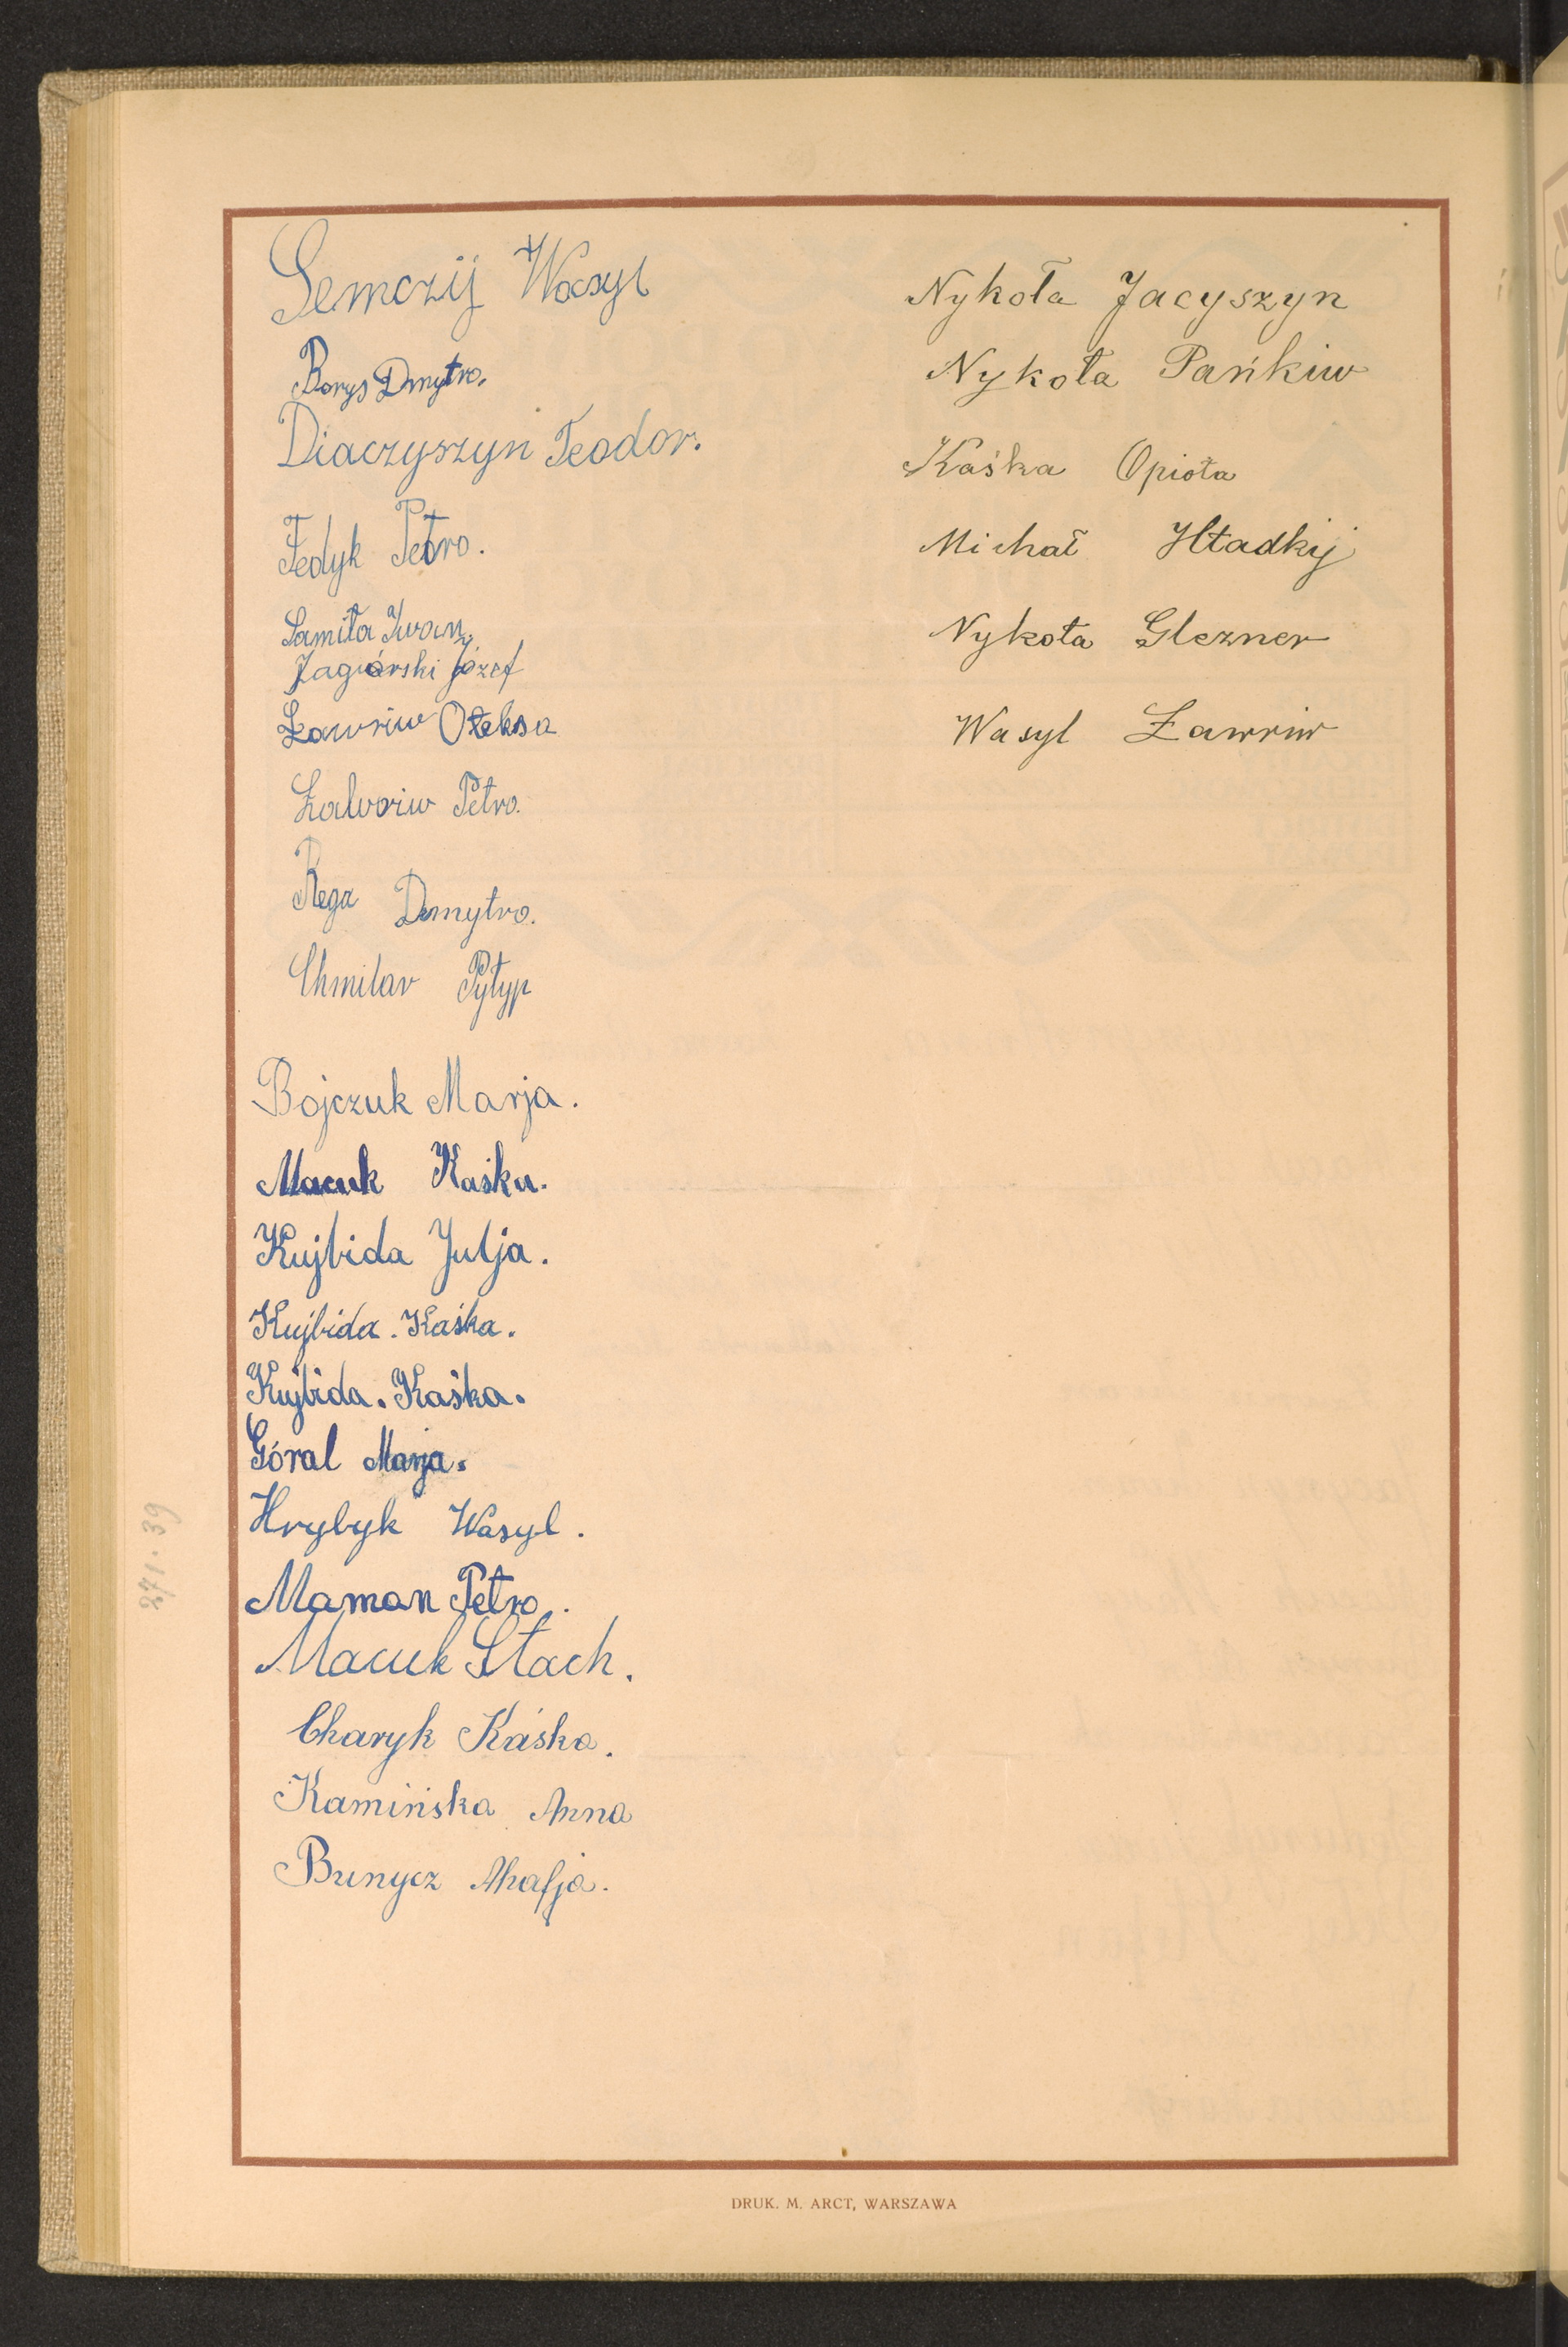 Semczij Wasyl
Borys Dmytro.
Diaczyszyn Teodor.
Fedyk Petro.
Samiła Iwan.
Zagórski Józef
Ławriw Ołeksa
Petro.
Rega Dmytro.
Chmilar Pyłyp
Bojczuk Marja.
Macuk Kaśka.
Kujbida Julja.
Kujbida. Kaśka.
Kujbida. Kaśka.
Góral Marja.
Hrybyk Wasyl.
Maman Petro.
Macuk Stach.
Charyk Kaśka.
Kamińska Anna
Bunycz Ahafja.
Nykoła Jacyszyn
Nykoła Pańkiw
Kaśka Opioła
Michał Hładkij
Nykoła Glezner
Wasyl Ławriw
271.39
DRUK. M. ARCT, WARSZAWA